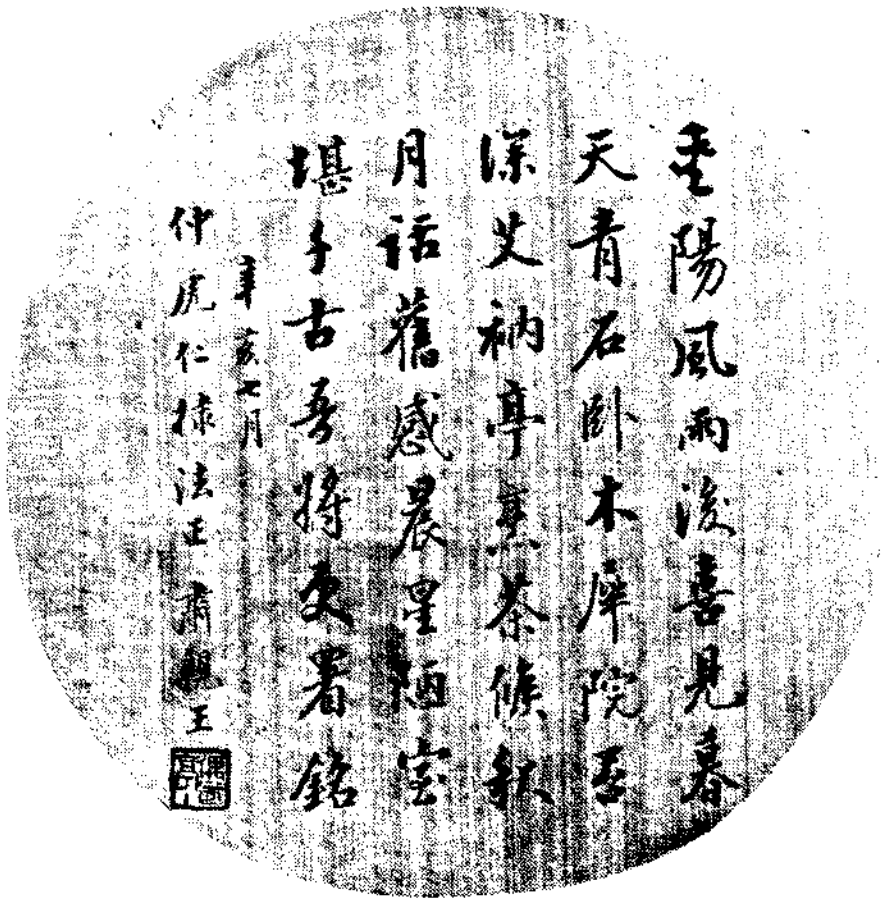 重陽風雨後喜見暮
天青石臥木犀院雲
深艾衲亭烹茶候秋
月話舊感晨星陋室
堪千古吾將更署銘
辛亥七月
仲虎仁棣法正肅親王